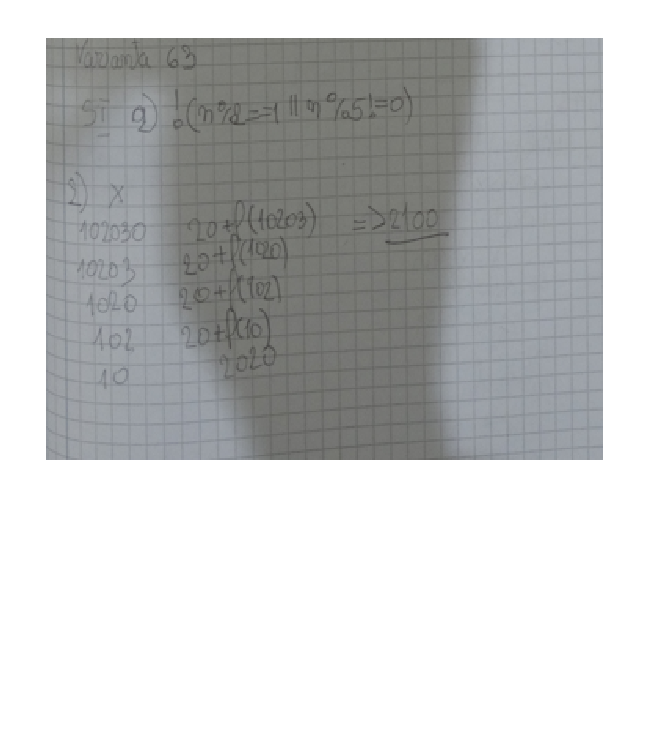 Varianta 63
SI a) !(n%2==1 || n%5!=0)
2) X
102030 20+f(10203) => 2100
10203 20+f(1020)
1020 20+f(102)
102 20+f(10)
10 2020